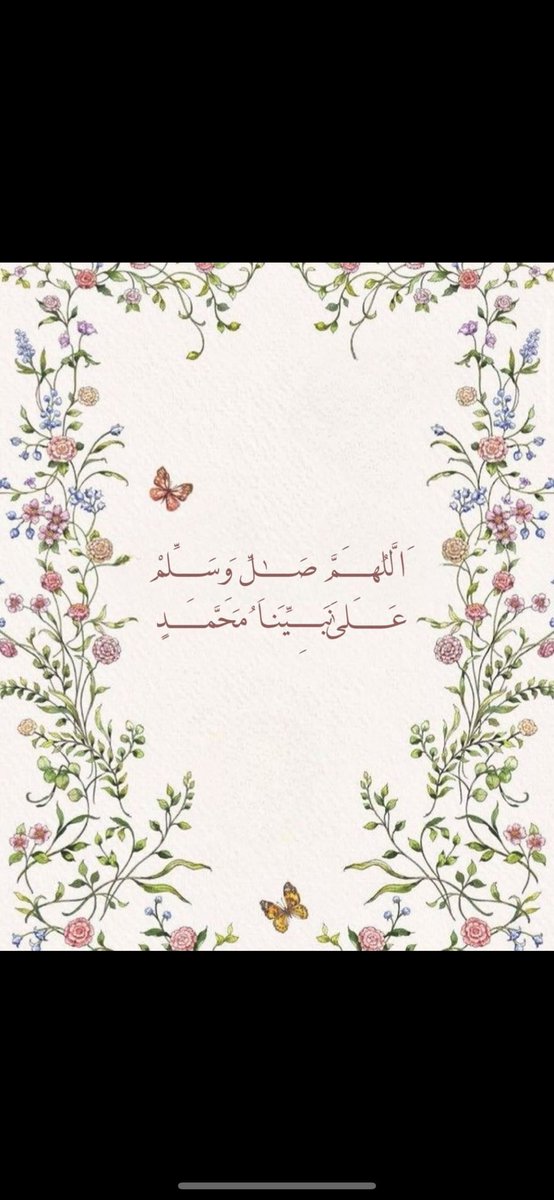 اَللَّهُمَّ صَلِّ وَسَلِّمْ
عَلَى نَبِيِّنَا مُحَمَّدٍ